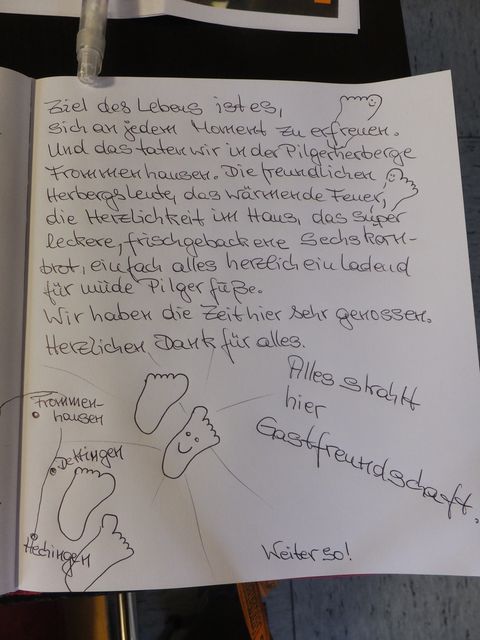 Ziel des Lebens ist es,
sich an jedem Moment zu erfreuen.
Und das taten wir in der Pilgerherberge
Frommenhausen. Die freundlichen
Herbergsleute, das wärmende Feuer,
die Herzlichkeit im Haus, das super
leckere, frischgebackene Sechskorn-
brot, einfach alles herzlich einladend
für müde Pilgerfüße.
Wir haben die Zeit hier sehr genossen.
Herzlichen Dank für alles.
Alles strahlt
hier
Gastfreundschaft.
Frommen-
hausen
Dettingen
Hechingen
Weiter so!